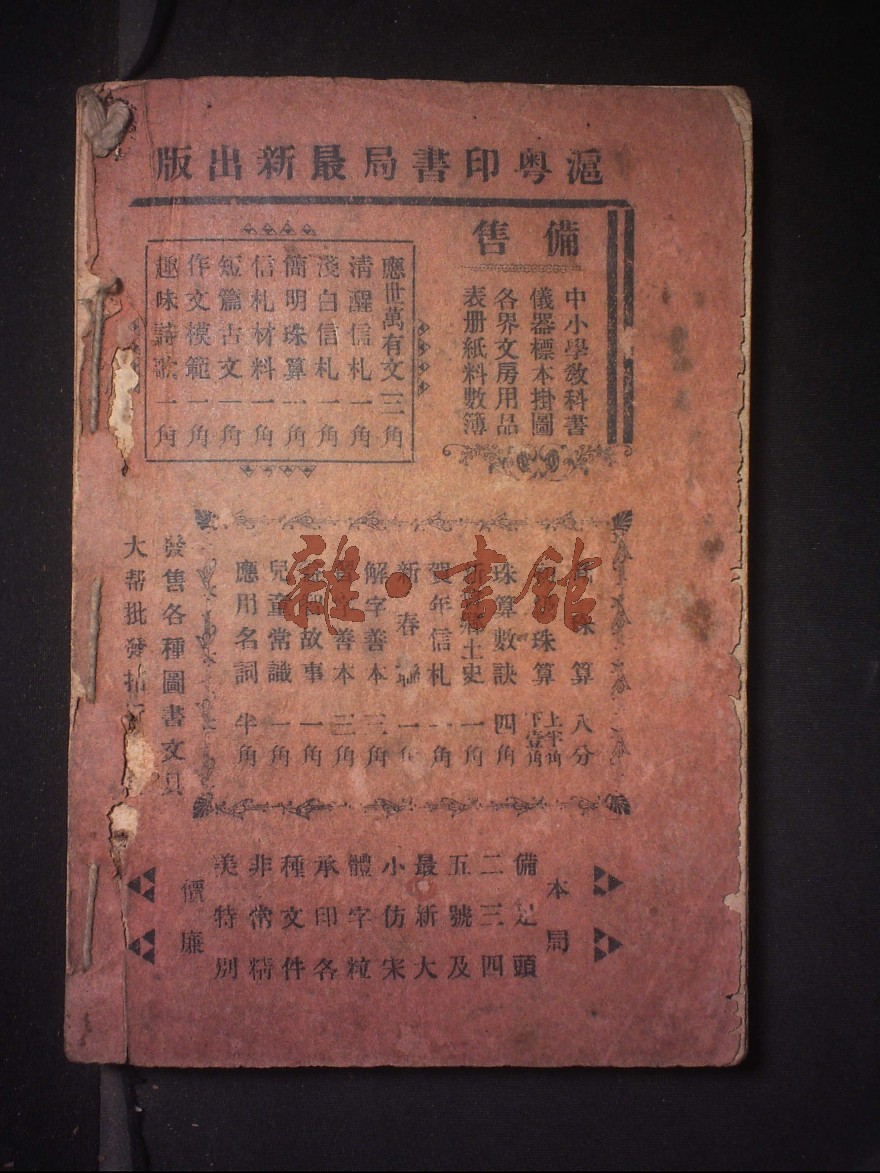 滬粤印書局最新出版
備售
中小學教科書
儀器標本掛圖
各界文房用品
表册紙料數簿
應世萬有文三角
清醒信札一角
淺白信札一角
簡明珠算一角
信札材料一角
短篇古文一角
作文模範一角
趣味詩歌一角
珠算八分
珠算上半角下壹角
珠算數訣四角
鄉土史一角
賀年信札一角
新春一角
解字善本三角
善本三角
故事一角
兒童常識一角
應用名詞半角
發售各種圖書文具
大帮批發
本局
備足頭
二三四
五號及
最新大
小仿宋
體字粒
承印各
種文件
非常精
美特別
價廉
雜·書館